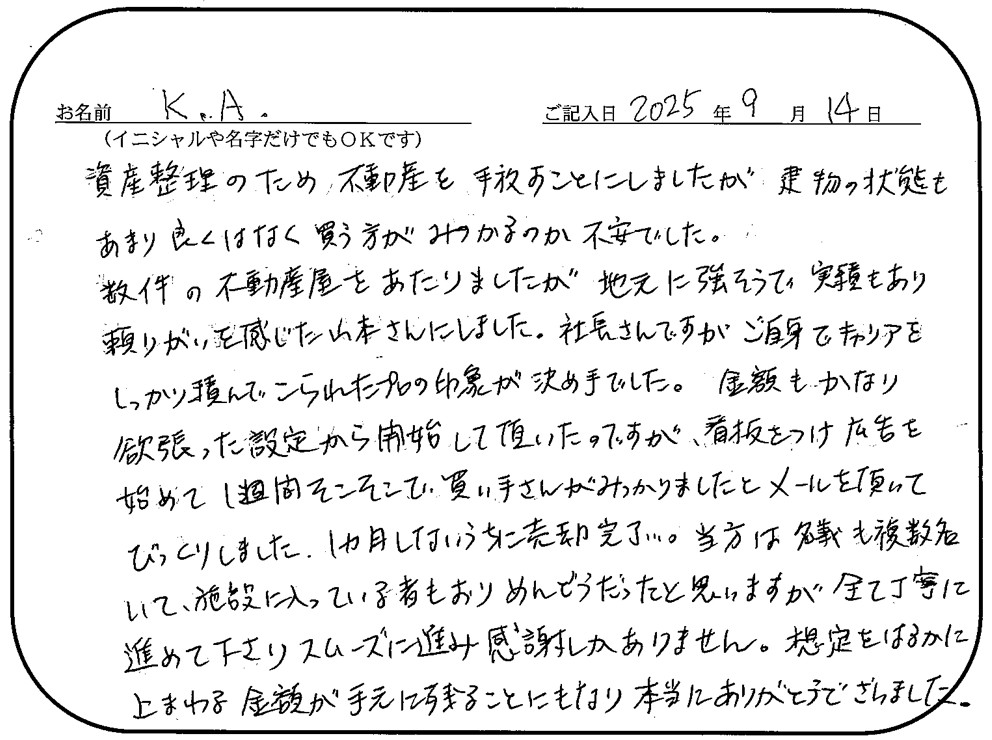 お名前 K.A. ご記入日 2025年9月14日
(イニシャルや名字だけでもOKです)
資産整理のため不動産を手放すことにしましたが建物の状態も
あまり良くはなく買う方がみつかるのか不安でした。
数件の不動産屋をあたりましたが地元に強そうで実績もあり
頼りがいを感じた山本さんにしました。社長さんですがご自身でキャリアを
しっかり積んでこられたプロの印象が決め手でした。金額もかなり
欲張った設定から開始して頂いたのですが、看板をつけ広告を
始めて1週間そこそこで買い手さんがみつかりましたとメールを頂いて
びっくりしました、1カ月しないうちに売却完了…。当方は名義も複数名
いて、施設に入っている者もおりめんどうだったと思いますが全て丁寧に
進めて下さりスムーズに進み感謝しかありません。想定をはるかに
上まわる金額が手元に残ることにもなり本当にありがとうございました。